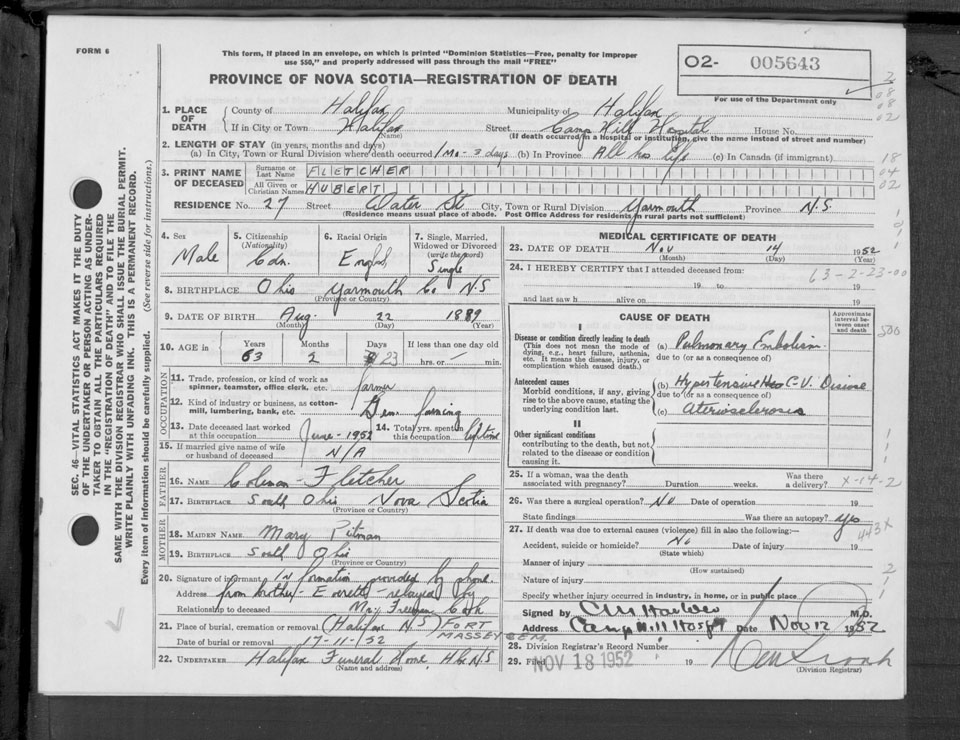 FORM 6
This form, if placed in an envelope, on which is printed "Dominion Statistics—Free, penalty for improper
use $50," and properly addressed will pass through the mail "FREE"
PROVINCE OF NOVA SCOTIA—REGISTRATION OF DEATH
O2- 005643
For use of the Department only
SEC. 46—VITAL STATISTICS ACT MAKES IT THE DUTY
OF THE UNDERTAKER OR PERSON ACTING AS UNDER-
TAKER TO OBTAIN ALL THE PARTICULARS REQUIRED
IN THE "REGISTRATION OF DEATH" AND TO FILE THE
SAME WITH THE DIVISION REGISTRAR WHO SHALL ISSUE THE BURIAL PERMIT.
WRITE PLAINLY WITH UNFADING INK. THIS IS A PERMANENT RECORD.
Every item of information should be carefully supplied. (See reverse side for instructions.)
1. PLACE OF DEATH County of Halifax Municipality of Halifax
If in City or Town Halifax Street Camp Hill Hospital House No.
(Name) (If death occurred in a Hospital or institution, give the name instead of street and number)
2. LENGTH OF STAY (in years, months and days)
(a) In City, Town or Rural Division where death occurred 1 Mo - 3 days (b) In Province All his life (c) In Canada (if immigrant)
3. PRINT NAME OF DECEASED Surname or Last Name FLETCHER
All Given or Christian Names HUBERT
RESIDENCE No. 27 Street Water St City, Town or Rural Division Yarmouth Province N.S
(Residence means usual place of abode. Post Office Address for residents in rural parts not sufficient)
4. Sex Male
5. Citizenship (Nationality) Cdn.
6. Racial Origin English
7. Single, Married, Widowed or Divorced (write the word) Single
8. BIRTHPLACE Ohio Yarmouth Co N.S
(Province or Country)
9. DATE OF BIRTH Aug. 22 1889
(Month) (Day) (Year)
10. AGE in Years Months Days If less than one day old
63 2 23 hrs. or min.
OCCUPATION
11. Trade, profession, or kind of work as spinner, teamster, office clerk, etc. farmer
12. Kind of industry or business, as cotton-mill, lumbering, bank, etc. Gen. farming
13. Date deceased last worked at this occupation June - 1952
14. Total yrs. spent in this occupation lifetime
15. If married give name of wife or husband of deceased N/A
FATHER
16. NAME Coleman Fletcher
17. BIRTHPLACE South Ohio Nova Scotia
(Province or Country)
MOTHER
18. MAIDEN NAME Mary Pitman
19. BIRTHPLACE South Ohio
(Province or Country)
20. Signature of informant Information provided by phone.
Address from brother - Everett - relayed by
Relationship to deceased Mr. Freeman Cook
21. Place of burial, cremation or removal (Halifax N.S) FORT MASSEY CEM.
Date of burial or removal 17-11-/52
22. UNDERTAKER Halifax Funeral Home Hfx N.S
(Name and address)
MEDICAL CERTIFICATE OF DEATH
23. DATE OF DEATH Nov 14 1952
(Month) (Day) (Year)
24. I HEREBY CERTIFY that I attended deceased from:
19 to 19
and last saw h alive on 19
63-2-23-00
CAUSE OF DEATH
Approximate interval between onset and death
I
Disease or condition directly leading to death
(This does not mean the mode of dying, e.g., heart failure, asthenia, etc. It means the disease, injury, or complication which caused death.)
(a) Pulmonary Embolism
due to (or as a consequence of)
Antecedent causes
Morbid conditions, if any, giving rise to the above cause, stating the underlying condition last.
(b) Hypertensive C-V. Disease
due to (or as a consequence of)
(c) Aterioscleroses
II
Other significant conditions
contributing to the death, but not related to the disease or condition causing it.
25. If a woman, was the death associated with pregnancy? Duration weeks. Was there a delivery? X-14-2
26. Was there a surgical operation? No Date of operation 19
State findings Was there an autopsy? Yes
27. If death was due to external causes (violence) fill in also the following:— 443X
Accident, suicide or homicide? No Date of injury 19
(State which)
Manner of injury
(How sustained)
Nature of injury
Specify whether injury occurred in industry, in home, or in public place
Signed by M.D.
Address Camp Hill Hosp Date Nov 17 1952
28. Division Registrar's Record Number
29. Filed NOV 18 1952 19
(Division Registrar)